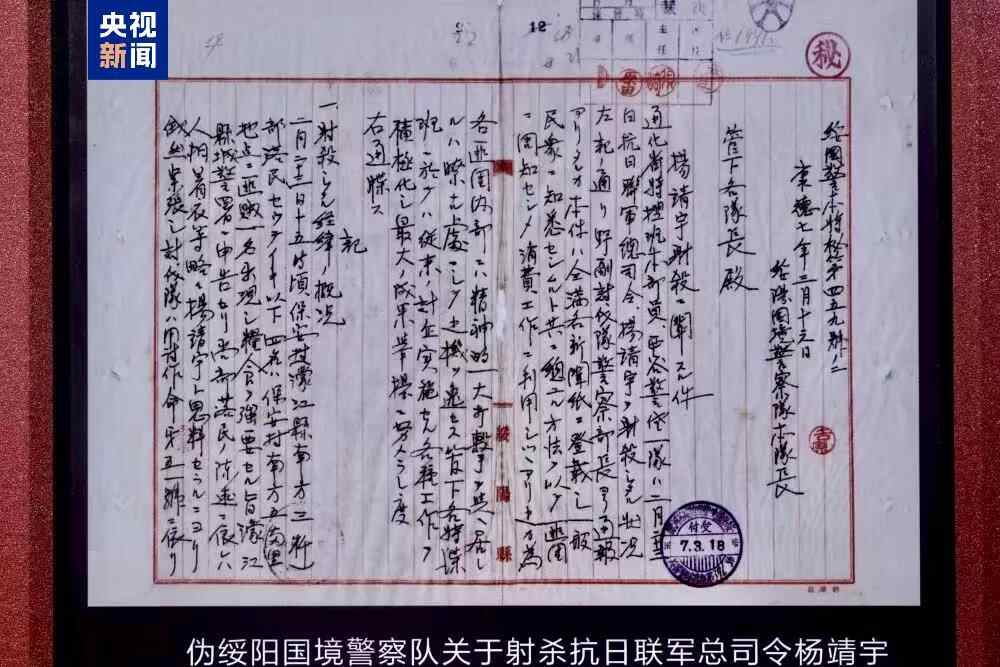 央视
新闻
12
秘
綏國警本特秘第四五九號ノ二
康德七年三月十三日
綏陽國境警察隊本隊長
管下各隊長殿
楊靖宇射殺ニ關スル件
本部員西谷警佐一隊ハ二月二十三
日抗日聯軍總司令楊靖宇ヲ射殺シタル狀況
左記ノ通リ野副討伐隊警察部長ヨリ通報
アリタルガ本件ハ全滿各新聞紙ニ登載シ一般
民衆ニ知悉セシムルト共ニ總ユル方法ヲ以テ匪團
ニ周知セシメ消費工作ニ利用シツツアリ
各匪團內部ニハ精神的一大打擊ヲ與ヘ居レ
ルハ ニシテ 機ヲ逸セス管下各特
班ニ於テハ從來 実施セル各種工作ヲ
積極化シ最大ノ成果挙揚ニ努メラレ度
右通牒ス
記
一、射殺シタル経緯ノ概況
二月二十三日十五時頃保安村濛江縣南方三粁
部落民 以下四名ハ保安村南方五
地点ニ匪賊一名出現シ糧食ヲ強要セル旨濛江
縣城警署ニ申告セリ尚部落民ノ陳述ニ依レハ
人相着衣等略々楊靖宇ト思料セラルルニヨリ
俄然緊張シ討伐隊ハ 作命第五號ニ依リ
綏陽縣
付受
7.3.18
伪绥阳国境警察队关于射杀抗日联军总司令杨靖宇